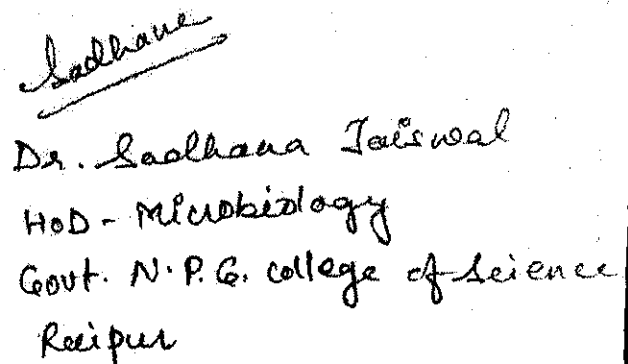 Sadhana
Dr. Sadhana Jaiswal
HoD - Microbiology
Govt. N.P.G. college of Science
Raipur